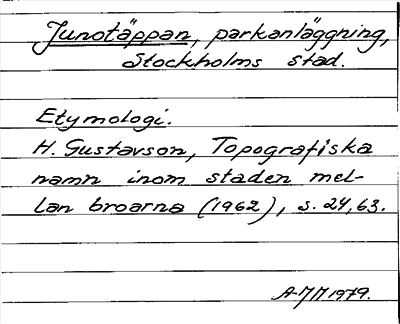 Junotäppan, parkanläggning,
Stockholms stad.
Etymologi.
H. Gustavson, Topografiska
namn inom staden mel-
lan broarna (1962), s. 24, 63.
A-MM 1979.